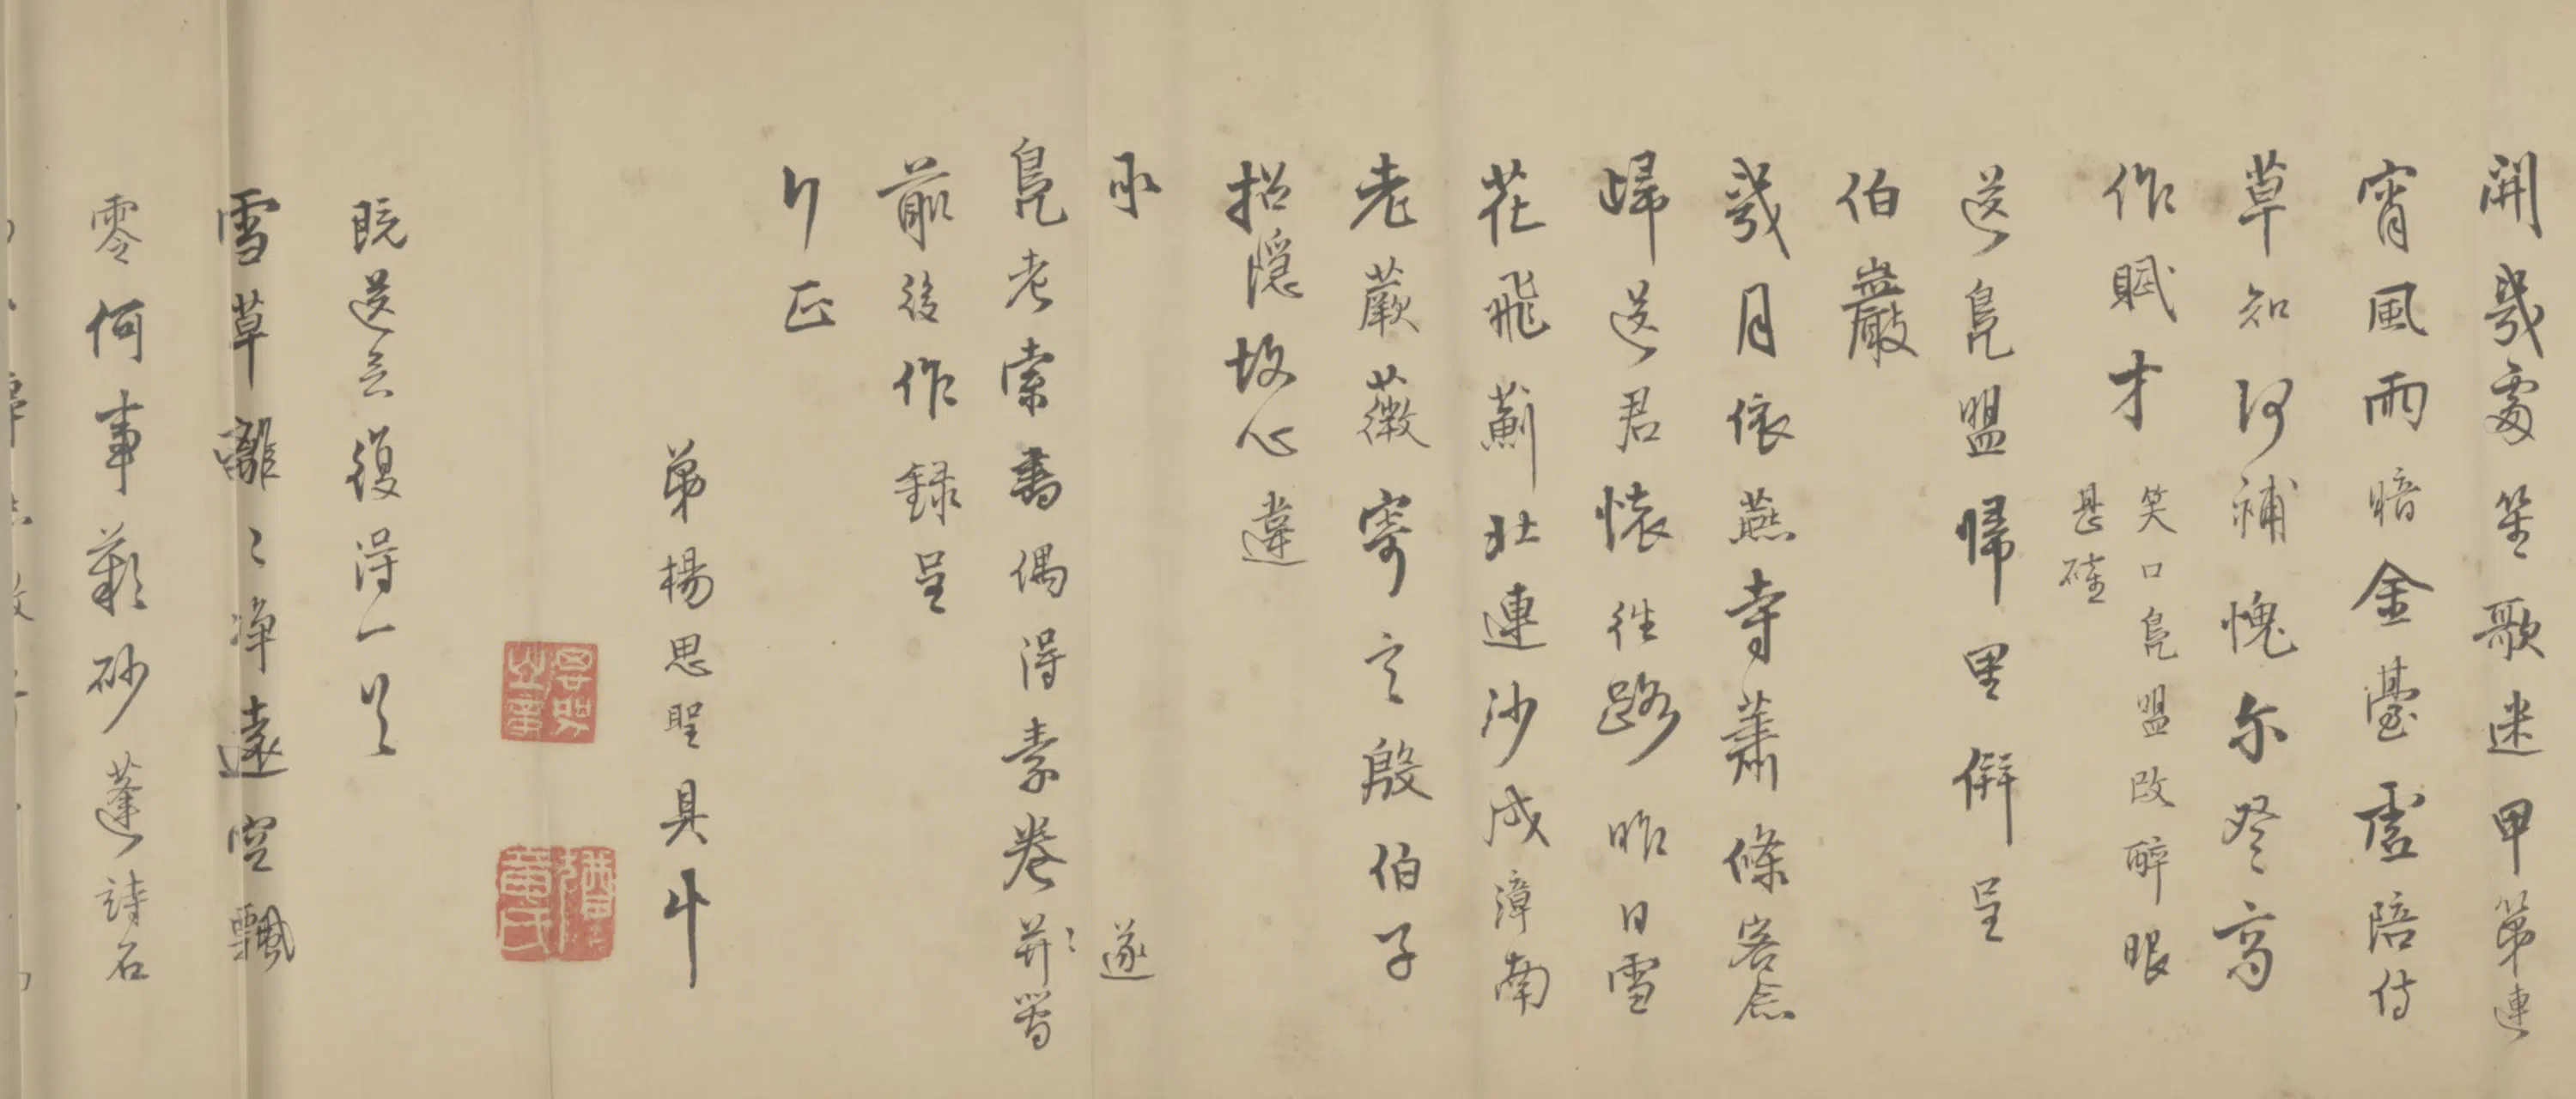 開幾處笙歌迷甲第連
宵風雨暗金臺虛陪侍
草知何補愧尔登高
作賦才 笑口鳧盟改醉眼
甚確
送鳧盟歸里併呈
伯巖
幾月依燕寺蕭條客念
歸送君懷往路昨日雪
花飛薊北連沙成漳南
老蕨薇寄言殷伯子
招隱故心違
承
鳧老索書偶得素卷
遂
前後作錄呈
正
弟楊思聖具
既送言復得一首
雪草離〻淨遠空飄
零何事歎砂蓬詩名